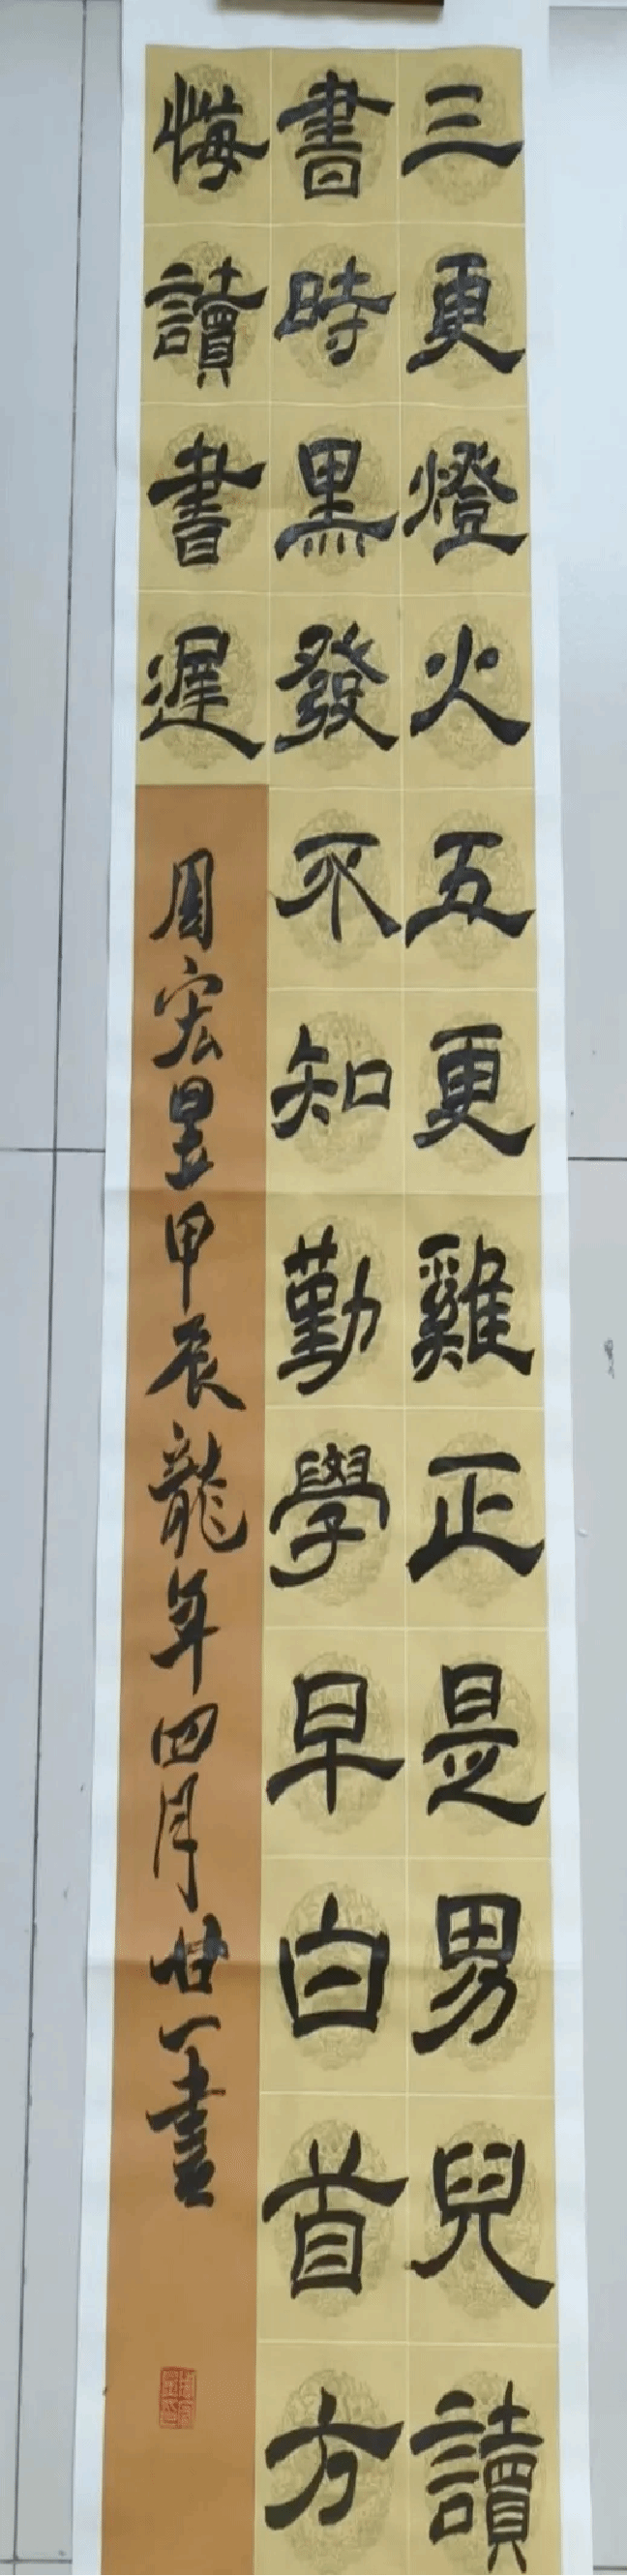 三更燈火五更雞正是男兒讀
書時黑發不知勤學早白首方
悔讀書遲
周宏昱甲辰龍年四月廿一書